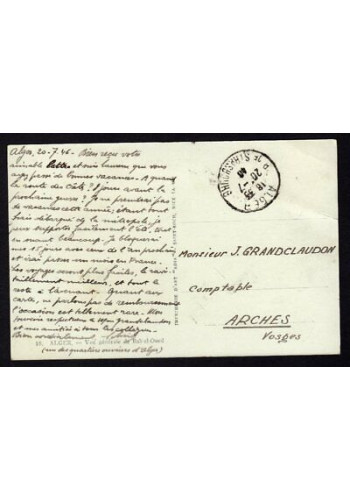 Alger, 20-7-46 - Bien reçu votre
aimable et suis heureux que vous
ayez passé de bonnes vacances. A quand
la route des Cols? 8 jours avant la
prochaine guerre? Je ne prendrai pas
de vacances cette année, étant tout
frais débarqué de la métropole, je
peux supporter facilement l'été. Tout
en suant beaucoup. Je bloquerai
mes 15 jours avec ceux de l'an prochain
et irai passer un mois en France.
Les voyages seront plus faciles, le ravi-
taillement meilleur, et tout le
reste à l'avenant. Quant aux
cartes, ne parlons pas de remboursement
l'occasion est tellement rare. Mon
souvenir respectueux à Mme Grandclaudon
et mes amitiés à tous les collègues.
Bien cordialement
10. ALGER. - Vue générale de Bab-el-Oued
(un des quartiers ouvriers d'Alger)
ALGER
20-7
Monsieur J. GRANDCLAUDON
Comptable
ARCHES
Vosges